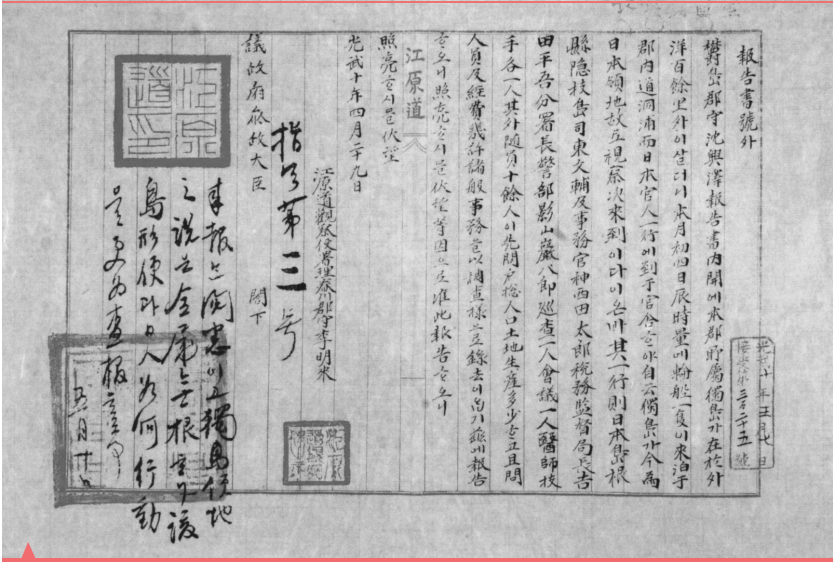 光武十年五月七日
接受第三百二十五號
報告書號外
鬱島郡守沈興澤報告書內開에本郡所屬獨島가在於外
洋百餘里外이살더니本月初四日辰時量에輪船一隻이來泊于
郡內道洞浦而日本官人一行에到于官舍ᄒᆞ야自云獨島가今爲
日本領地故로視察次來到이다이온바其一行則日本島根
縣隱技島司東文輔及事務官神西田太郎稅務監督局長吉
田平吾分署長警部影山巖八郎巡查一人會議一人醫師技
手各一人其外隨員十餘人이先問戶摠人口土地生産多少ᄒᆞ고且問
人員及經費幾許諸般事務를以調查樣으로錄去이ᄋᆞᆸ기玆에報告
ᄒᆞ오니照亮ᄒᆞ시믈伏望等因으로准此報告ᄒᆞ오니
江原道
照亮ᄒᆞ시믈伏望
光武十年四月二十九日
江原道觀察使署理春川郡守李明來
指令第三号
議政府參政大臣 閤下
來報는閱悉이고獨島領地
之說은全屬無根ᄒᆞ나該
島形便과日人如何行動
을更爲查報ᄒᆞᆯ事
五月二十日